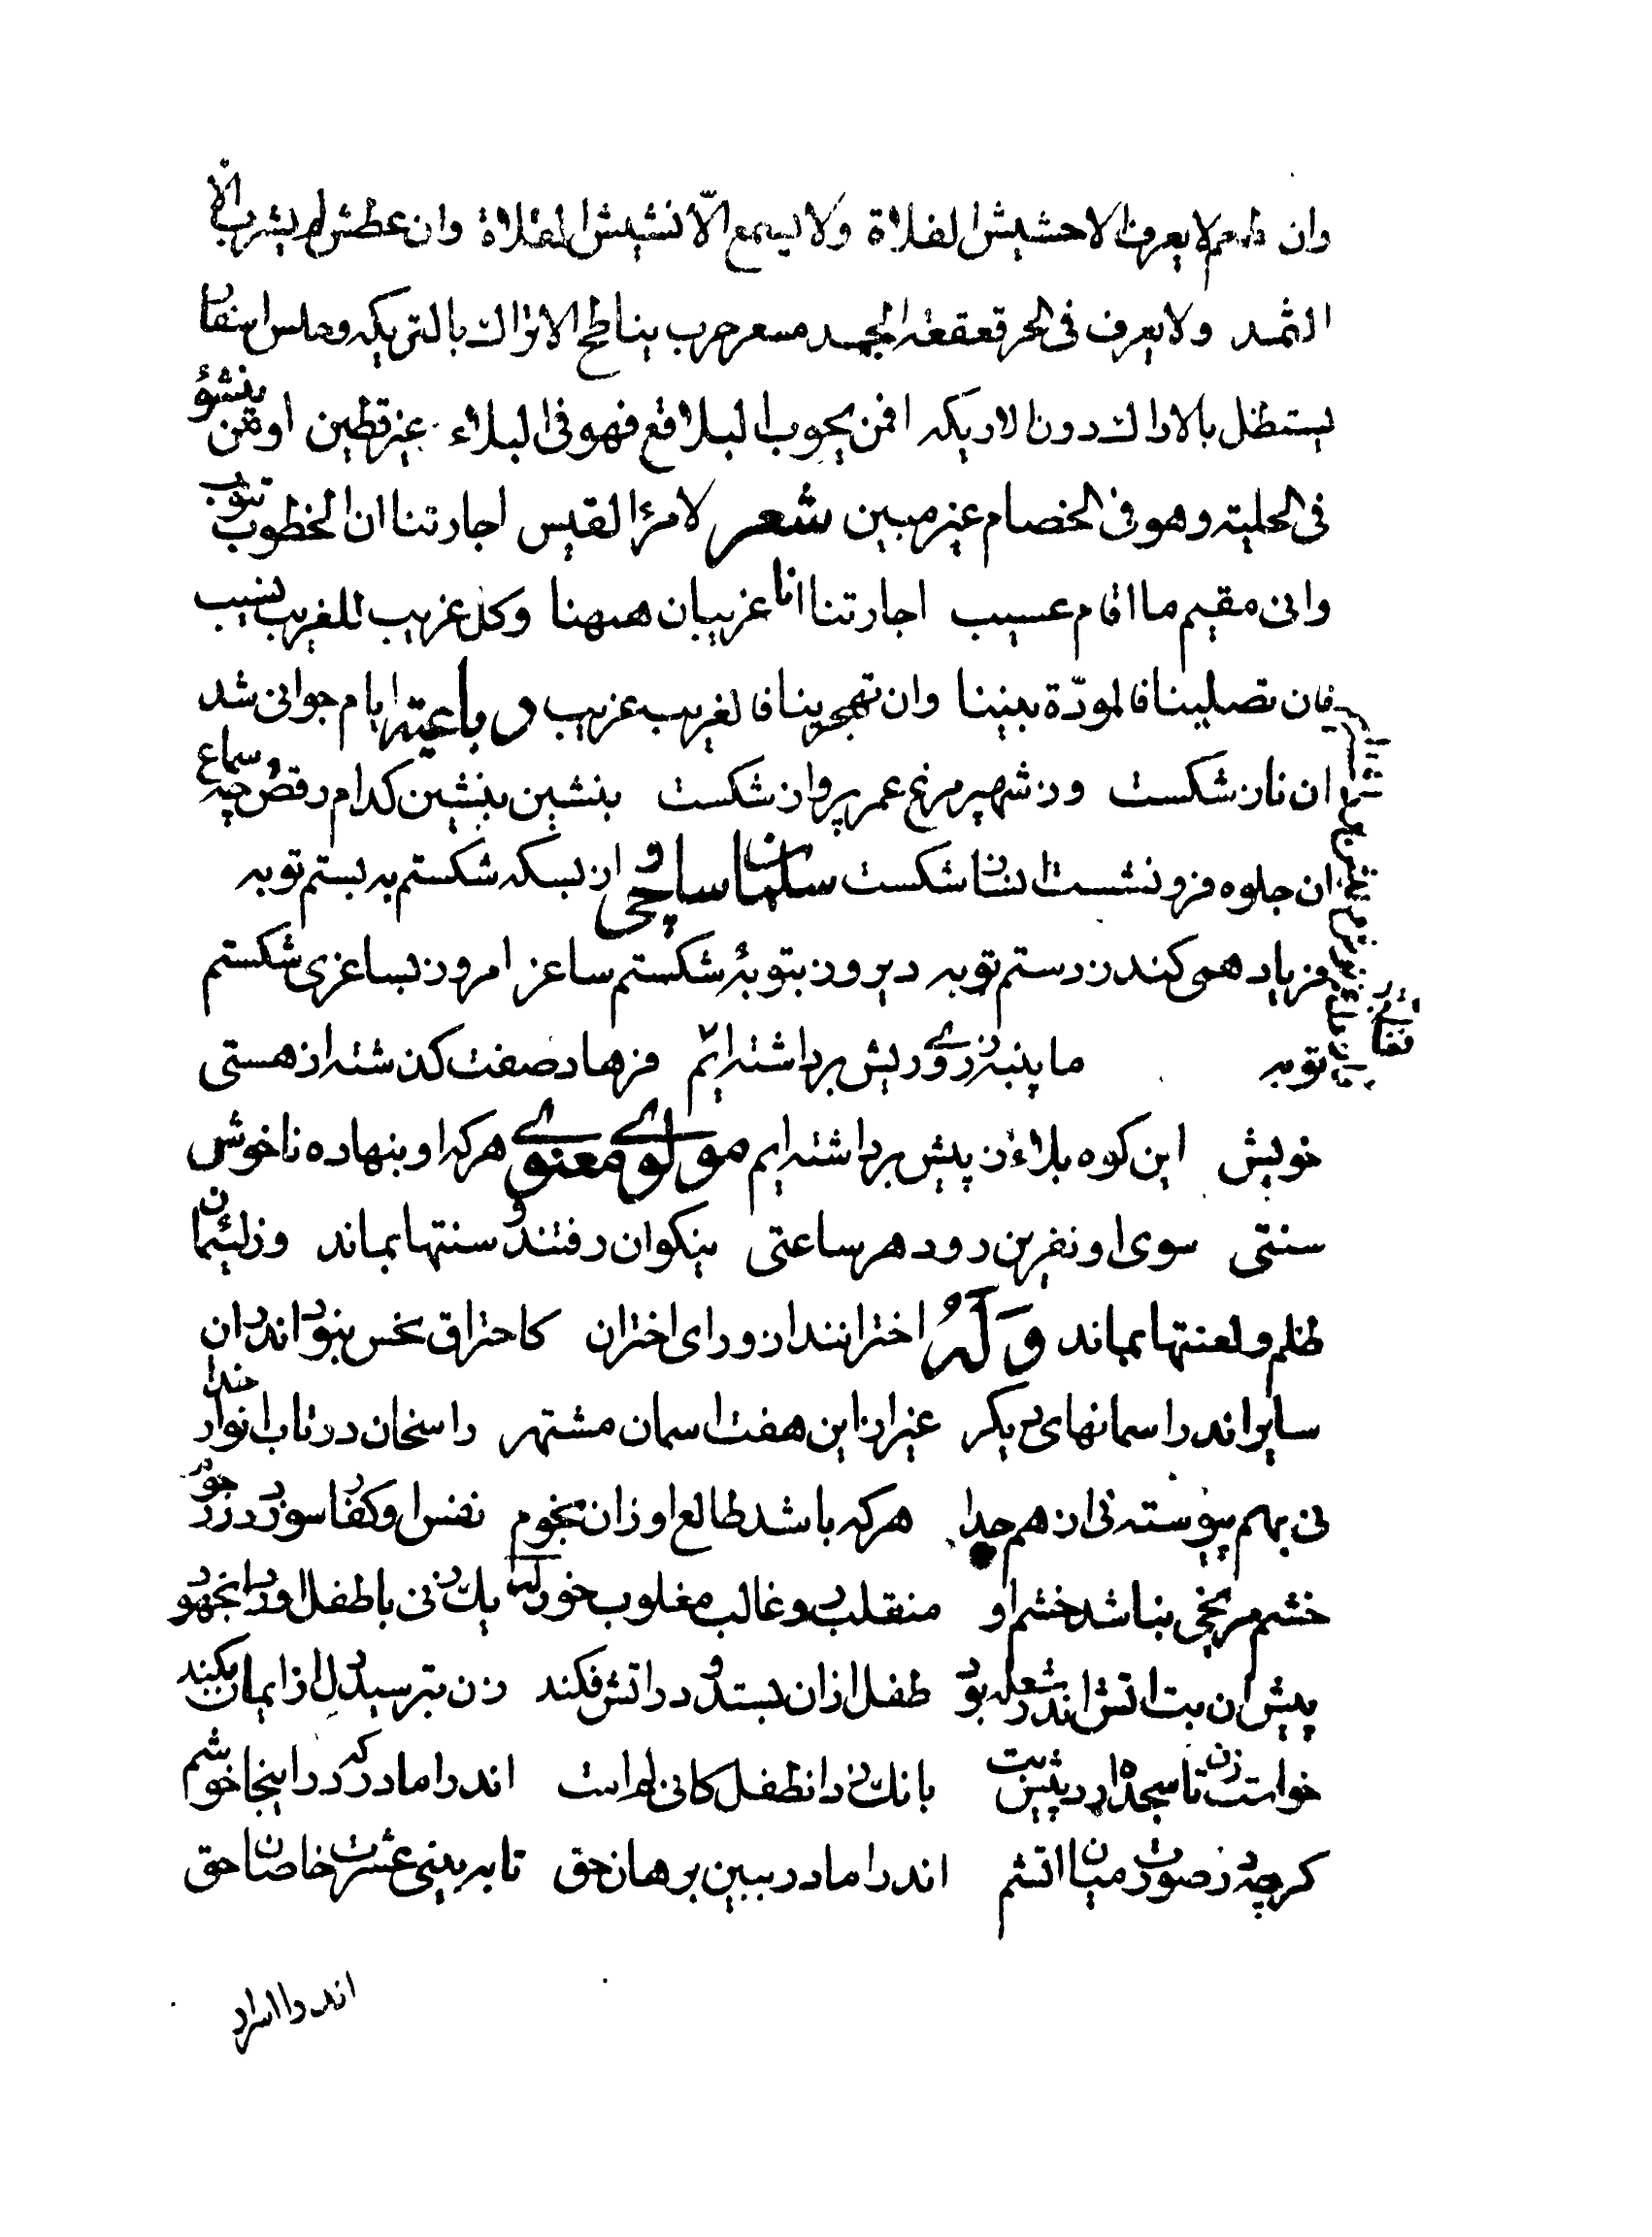 وان طعم لا يعرف الا حشيش الفلاة ولا يسمع الّا نشيش المقلاة وان عطش لم يشرب الا
الثمد ولا يعرف فى الحر قعقعة الجمد مسعر حرب يناطح الاتراك بالتريكه وحلس اسفار
يستظل بالاراك دون الاريكه افمن يجوب البلاقع فهو فى البلاء غير قطين اومن ينشؤ
فى الحلية وهو فى الخصام غير مبين شعر لامرئ القيس اجارتنا ان الخطوب تنوب
وانى مقيم ما اقام عسيب اجارتنا انا غريبان ههنا وكل غريب للغريب نسيب
فان تصلينا فالمودّة بيننا وان تهجرينا فالغريب غريب رباعيه ايام جوانى شد
ان ناز شكست وز شهپر مرغ عمر پرواز شكست بنشين بنشين كدام رقص وچه سماع
ان جلوه فرو نشست ان ساز شكست سلمان ساوجى از بسكه شكستم به بستم توبه
فرياد همى كند ز دستم توبه ديروز بتوبهٔ شكستم ساغر امروز بساغرى شكستم
توبه ما پنبه ز روى ريش برداشته ايم فرهاد صفت كذشته از هستى
خويش اين كوه بلاء ز پيش برداشته ايم مولوى معنوى هركه او بنهاده ناخوش
سنتى سوى او نفرين رود هر ساعتى نيكوان رفتند و سنتها بماند وز لئيمان
ظلم و لعنتها بماند وَلَهُ اخترانند از وراى اختران كاحتراق نحس نبود اندر ان
ساير اندر اسمانهاى ديكر غير از اين هفت اسمان مشتهر راسخان در تاب انوار خدا
نى بهم پيوسته نى از هم جدا هركه باشد طالع او زان نجوم نفس او كفار سوزد در رجوم
خشم مريخى نباشد خشم او منقلب رو غالب مغلوب خو وله يك زنى با طفل اورد انجهود
پيش ان بت اتش اندر شعله بود طفل ازان بستد و در اتش فكند زن بترسيد دل از ايمان بكند
خواست زن تا سجده ارد پيش بت بانك زد انطفل كانى لم امت اندر ا مادر كه در اينجا خوشم
كرچه در صورت ميان اتشم اندر ا مادر ببين برهان حق تا به بينى عشرت خاصان حق
اندر ا اسرار